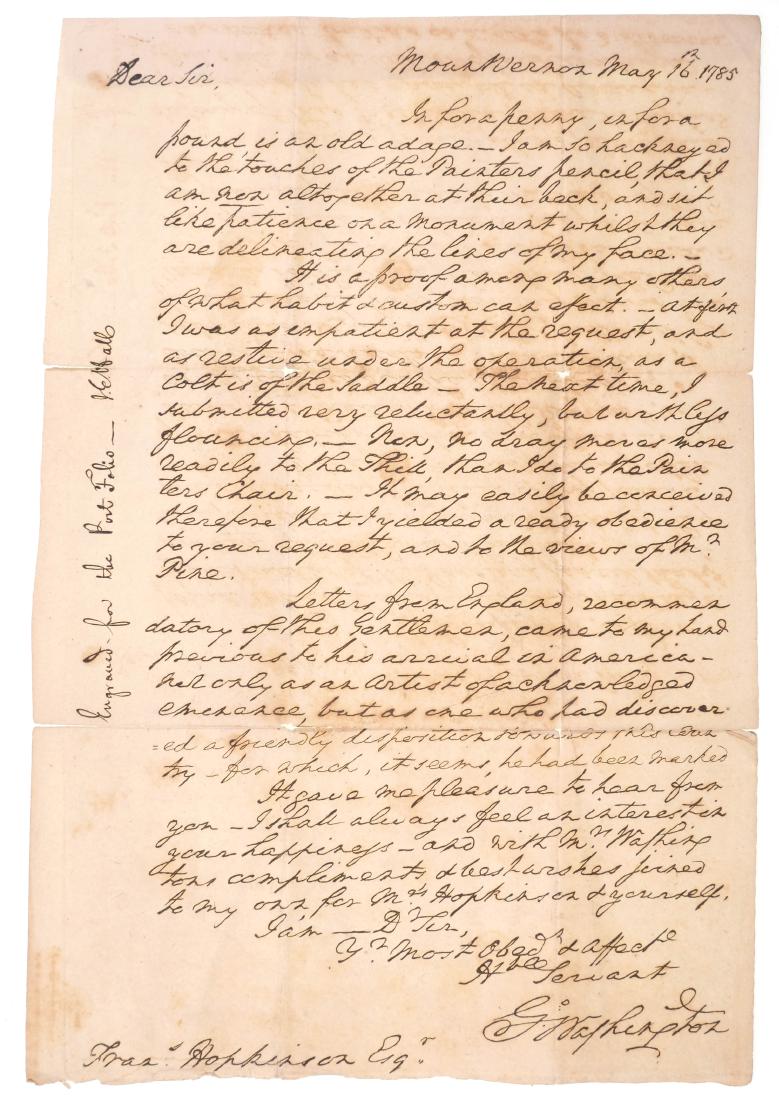 Mount Vernon May 16th 1785
Dear Sir,
In for a penny, in for a
pound, is an old adage. — I am so hackneyed
to the touches of the Painters pencil, that I
am now altogether at their beck, and sit
like patience on a monument whilst they
are delineating the lines of my face. —
It is a proof among many others
of what habit & custom can effect. — At first
I was as impatient at the request, and
as restive under the operation, as a
Colt is of the Saddle — The next time, I
submitted very reluctantly, but with less
flouncing. — Now, no dray moves more
readily to the Thill, than I do to the Pain
ters Chair. — It may easily be conceived
therefore that I yielded a ready obedience
to your request, and to the views of Mr.
Pine.
Letters from England, recommen
datory of this Gentleman, came to my hand
previous to his arrival in America —
not only as an Artist of acknowledged
eminence, but as one who had discover
=ed a friendly disposition towards this Coun
try — for which, it seems, he had been marked
It gave me pleasure to hear from
you — I shall always feel an interest in
your happiness — and with Mrs Washing
tons compliments & best wishes joined
to my own for Mrs Hopkinson & yourself.
I am — Dr Sir,
Yr Most Obedt & affecte
Hble Servant
Go Washington
Frans Hopkinson Esqr.
Engraved for the Port Folio — J E Hall